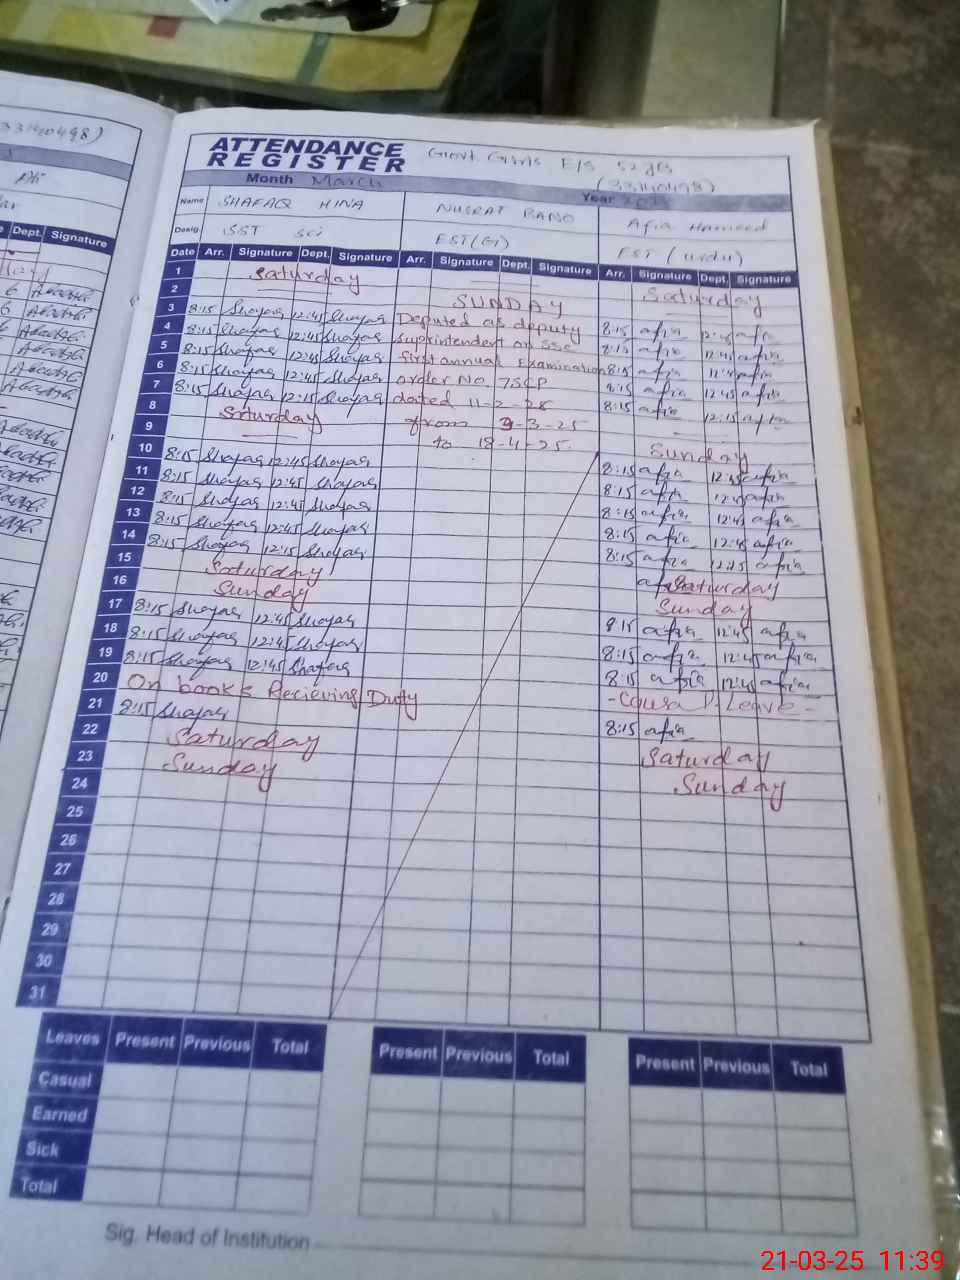 33140498)
ATTENDANCE
REGISTER
Govt. Girls E/S 52 JB
(33140498)
Month March Year
Name SHAFAQ HINA NUSRAT BANO Afia Hameed
Desig. SST Sci EST(G) EST (Urdu)
Dept. Signature
Date Arr. Signature Dept. Signature Arr. Signature Dept. Signature Arr. Signature Dept. Signature
1 Saturday Saturday
2 SUNDAY
3 8:15 Shafaq 12:45 Shafaq Deputed as deputy 8:15 afia 12:45 afia
4 8:15 Shafaq 12:45 Shafaq suprintendent on SSC 8:15 afia 12:45 afia
5 8:15 Shafaq 12:45 Shafaq first annual Examination 8:15 afia 12:45 afia
6 8:15 Shafaq 12:45 Shafaq order No. 7SCP 8:15 afia 12:45 afia
7 8:15 Shafaq 12:15 Shafaq dated 11-2-25 8:15 afia 12:15 afia
8 Saturday from 3-3-25
9 to 18-4-25. Sunday
10 8:15 Shafaq 12:45 Shafaq 8:15 afia 12:45 afia
11 8:15 Shafaq 12:45 Shafaq 8:15 afia 12:45 afia
12 8:15 Shafaq 12:45 Shafaq 8:15 afia 12:45 afia
13 8:15 Shafaq 12:45 Shafaq 8:15 afia 12:45 afia
14 8:15 Shafaq 12:15 Shafaq 8:15 afia 12:15 afia
15 Saturday Saturday
16 Sunday Sunday
17 8:15 Shafaq 12:45 Shafaq 8:15 afia 12:45 afia
18 8:15 Shafaq 12:45 Shafaq 8:15 afia 12:45 afia
19 8:15 Shafaq 12:45 Shafaq 8:15 afia 12:45 afia
20 On books Recieving Duty - Leave -
21 8:15 Shafaq 8:15 afia
22 Saturday Saturday
23 Sunday Sunday
24
25
26
27
28
29
30
31
Leaves Present Previous Total Present Previous Total Present Previous Total
Casual
Earned
Sick
Total
Sig. Head of Institution
21-03-25 11:39